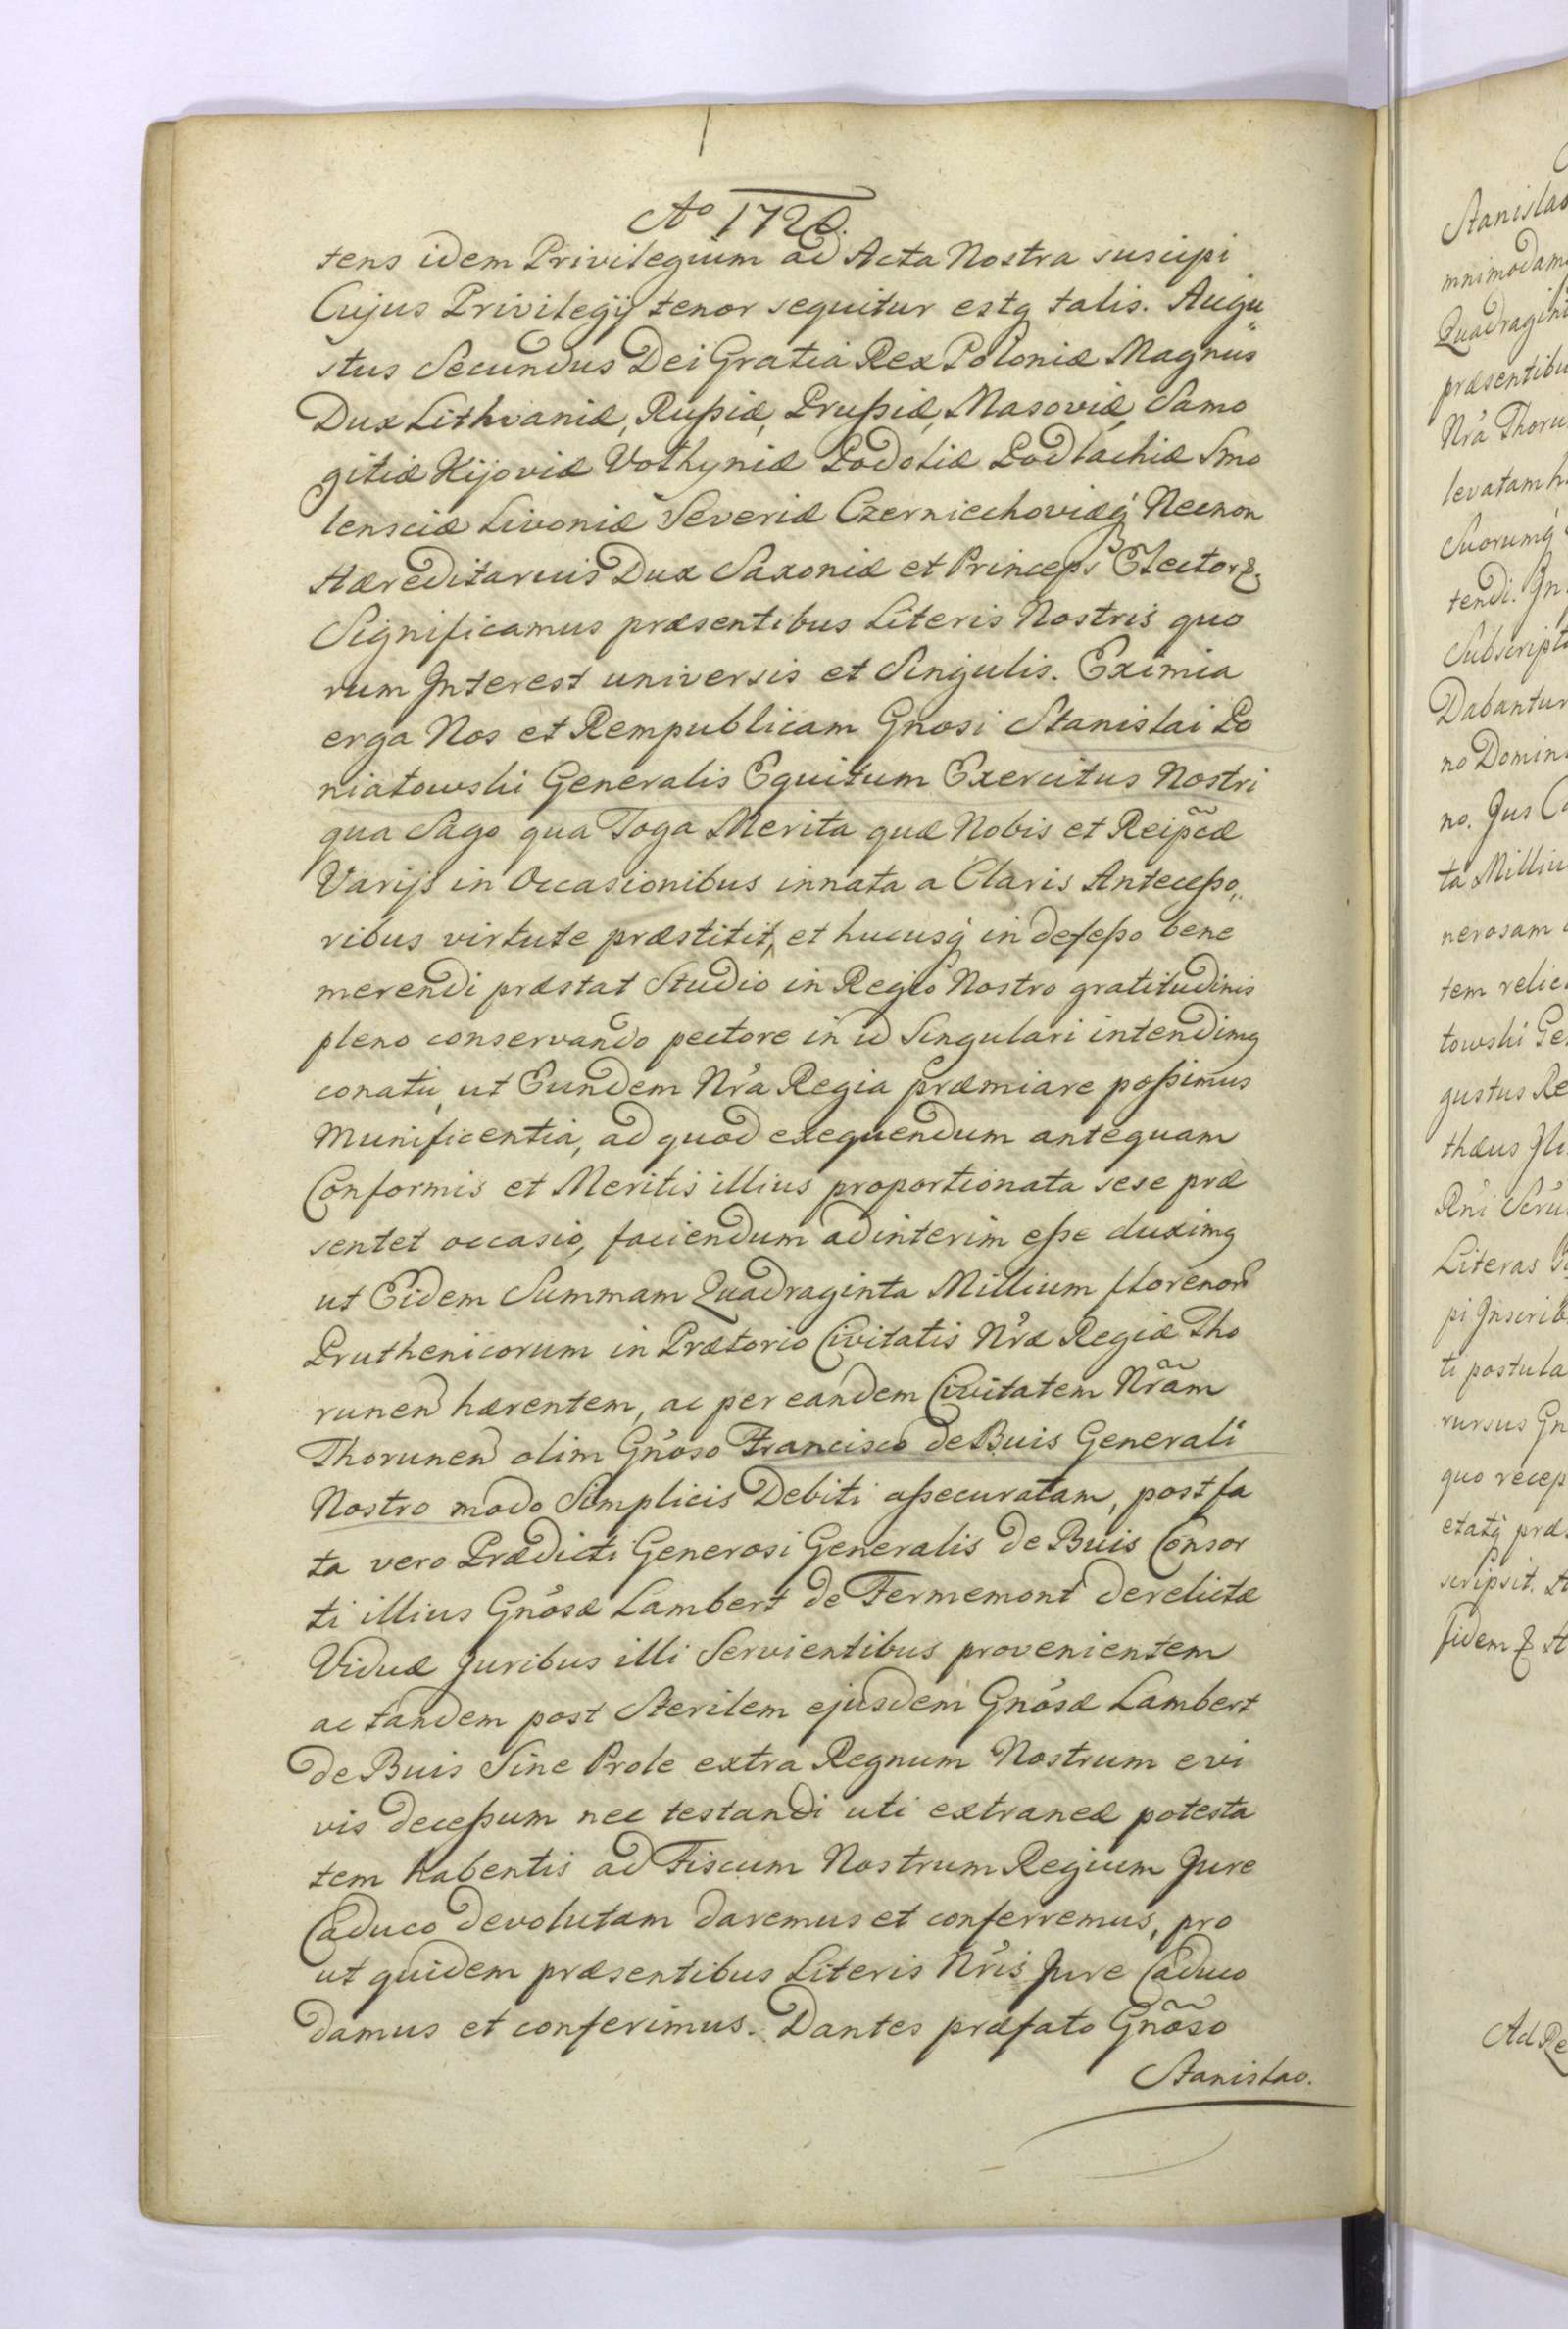 Ao 1720.
tens idem Privilegium ad Acta Nostra suscipi
Cujus Privilegij tenor sequitur estq talis. Augu„
stus Secundus Dei Gratia Rex Poloniæ Magnus
Dux Lithvaniæ, Rußiæ, Prußiæ, Masoviæ, Samo
gitiæ Kijoviæ Volhyniæ Podoliæ Podlachiæ Smo
lensciæ Livoniæ Severiæ Czerniechoviæq́ Necnon
Hæreditarius Dux Saxoniæ et Princeps Elector &
Significamus præsentibus Literis Nostris quo
rum Interest universis et Singulis. Eximia
erga Nos et Rempublicam Gnosi Stanislai Po
niatowski Generalis Equitum Exercitus Nostri
qua Sago qua Toga Merita quæ Nobis et Reipc̃æ
Varijs in Occasionibus innata a Claris Anteceßo„
ribus virtute præstitit, et hucusq́ indefeßo bene
merendi præstat Studio in Regio Nostro gratitudinis
pleno conservando pectore in id Singulari intendimq
conatu, ut Eundem Nŕa Regia præmiare poßimus
Munificentia, ad quod exequendum antequam
Conformis et Meritis illius proportionata sese præ
sentet occasio, faciendum adinterim eße duximq
ut Eidem Summam Quadraginta Millium florenor
Pruthenicorum in Prætorio Civitatis Nŕæ Regiæ Tho
runen hærentem, ac per eandem Civitatem Nr̃am
Thorunen olim Gńoso Francisco de Buis Generali
Nostro modo Simplicis Debiti aßecuratam, post fa
ta vero Prædicti Generosi Generalis de Buis Consor
ti illius Gnósæ Lambert de Fermemont derelictæ
Viduæ Juribus illi Servientibus provenientem
ac tandem post Sterilem ejusdem Gnósæ Lambert
de Buis Sine Prole extra Regnum Nostrum e vi
vis deceßum nec testandi uti extraneæ potesta
tem habentis ad Fiscum Nostrum Regium Jure
Caduco devolutam daremus et conferremus, pro
ut quidem præsentibus Literis Nŕis Jure Caduco
damus et conferimus. Dantes præfato Gnõso
Stanislao.